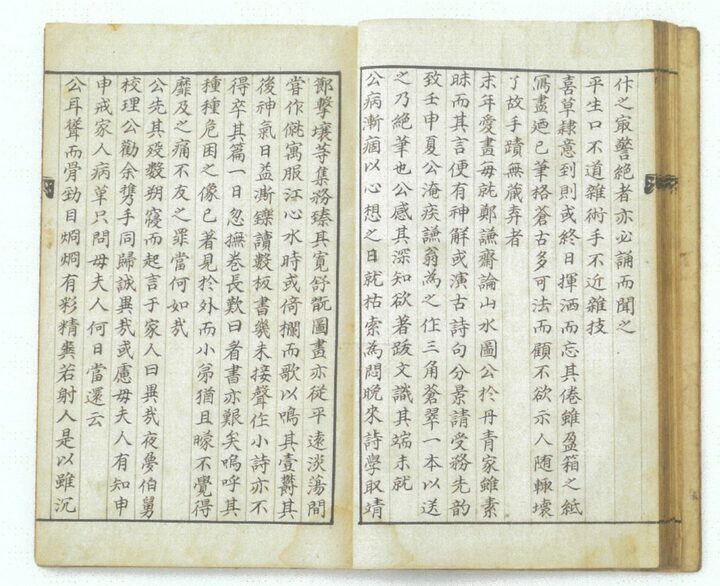 什之最警絕者亦必誦而聞之
平生口不道雜術手不近雜技
喜草隸意到則或終日揮洒而忘其倦雖盈箱之紙
寫盡迺已筆格蒼古多可法而顧不欲示人随輒壞
了故手蹟無藏弆者
末年愛畫每就鄭謙齋論山水圖公於丹青家雖素
昧而其言便有神解或演古詩句分景請受務先韵
致壬申夏公淹疾謙翁為之作三角蒼翠一本以送
之乃絕筆也公感其深知欲著跋文識其端未就
公病漸痼以心想之日就枯索為悶晚來詩學取靖
節擊壤等集務臻其寬舒翫圖畫亦從平遠淡蕩間
嘗作僦寓服江心水時或倚攔而歌以鳴其壹欝其
後神氣日益澌鑠讀數板書幾未接聲作小詩亦不
得卒其篇一日忽撫卷長歎曰看書亦艱矣嗚呼其
種種危困之像已著見於外而小弟猶且矇不覺得
靡及之痛不友之罪當何如㢤
公先其歿數朔寢而起言于家人曰異㢤夜夢伯舅
校理公勸余携手同歸誠異㢤或慮母夫人有知申
申戒家人病革只問母夫人何日當還云
公耳聳而骨勁目烱烱有彩精爽若射人是以雖沉